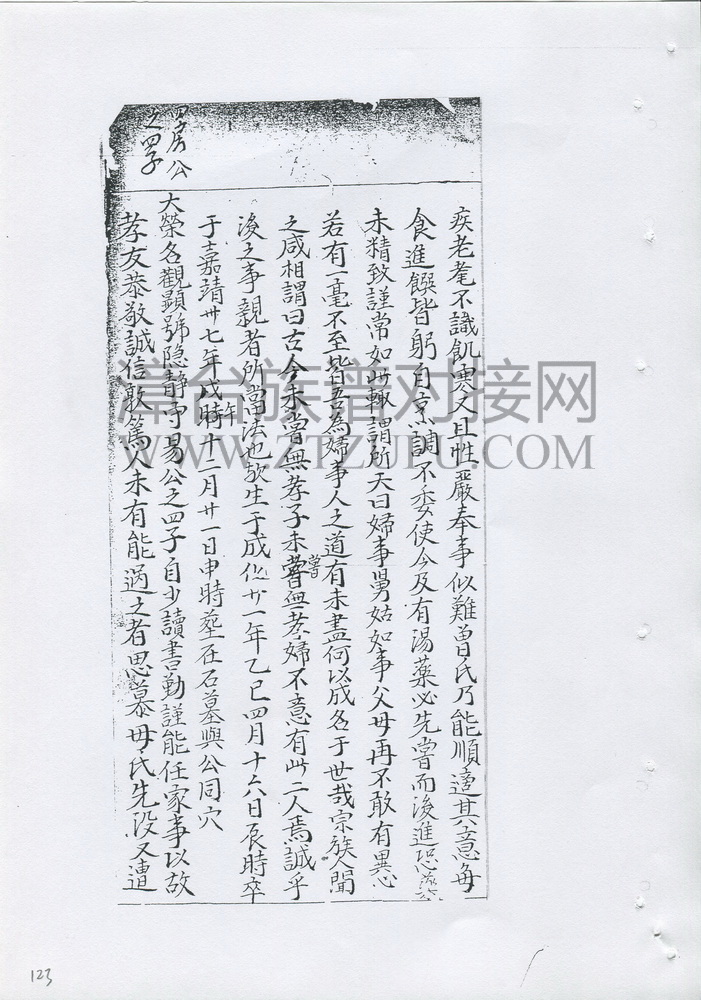 疾老耄不識飢寒又且性嚴奉事似難曾氏乃能順適其意每
食進饌皆躬自烹調不委使令及有湯藥必先嘗而後進恐
未精致謹常如此輙謂所天曰婦事舅姑如事父母再不敢有異心
若有一毫不至皆吾為婦事人之道有未盡何以成名于世哉宗族人聞
之咸相謂曰古今未嘗無孝子未嘗無孝婦不意有此二人焉誠乎
後之事親者所當法也欤生于成化廿一年乙巳四月十六日辰時卒
于嘉靖卅七年戊午十二月廿一日申時塟在石墓與公同穴
大榮名觀顯號隐静予易公之四子自少讀書勤謹能任家事以故
孝友恭敬誠信敦篤人未有能過之者思慕母氏先殁又遭
四房公
之四子
漳台族谱对接网
WWW.ZTZUPU.COM
123